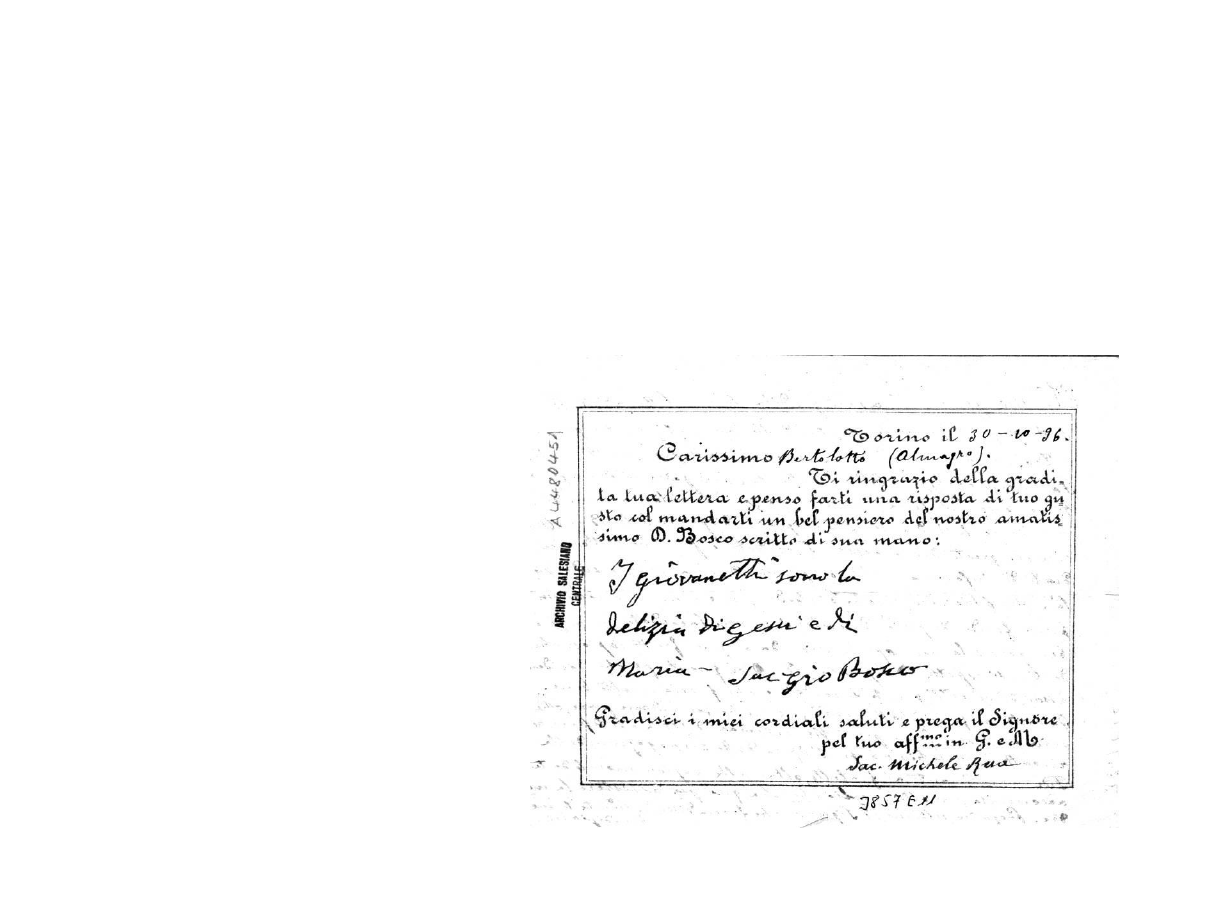 Torino il 30-10-96.
Carissimo Bertolotto (Almagro).
Ti ringrazio della gradi-
ta tua lettera e penso farti una risposta di tuo gu
sto col mandarti un bel pensiero del nostro amatis
simo D. Bosco scritto di sua mano:
I giovanetti sono la
delizia di Gesù e di
Maria - Sac Gio Bosco
Gradisci i miei cordiali saluti e prega il Signore
pel tuo aff.mo in G. e M.
Sac. Michele Rua
A4480451
ARCHIVIO SALESIANO
CENTRALE